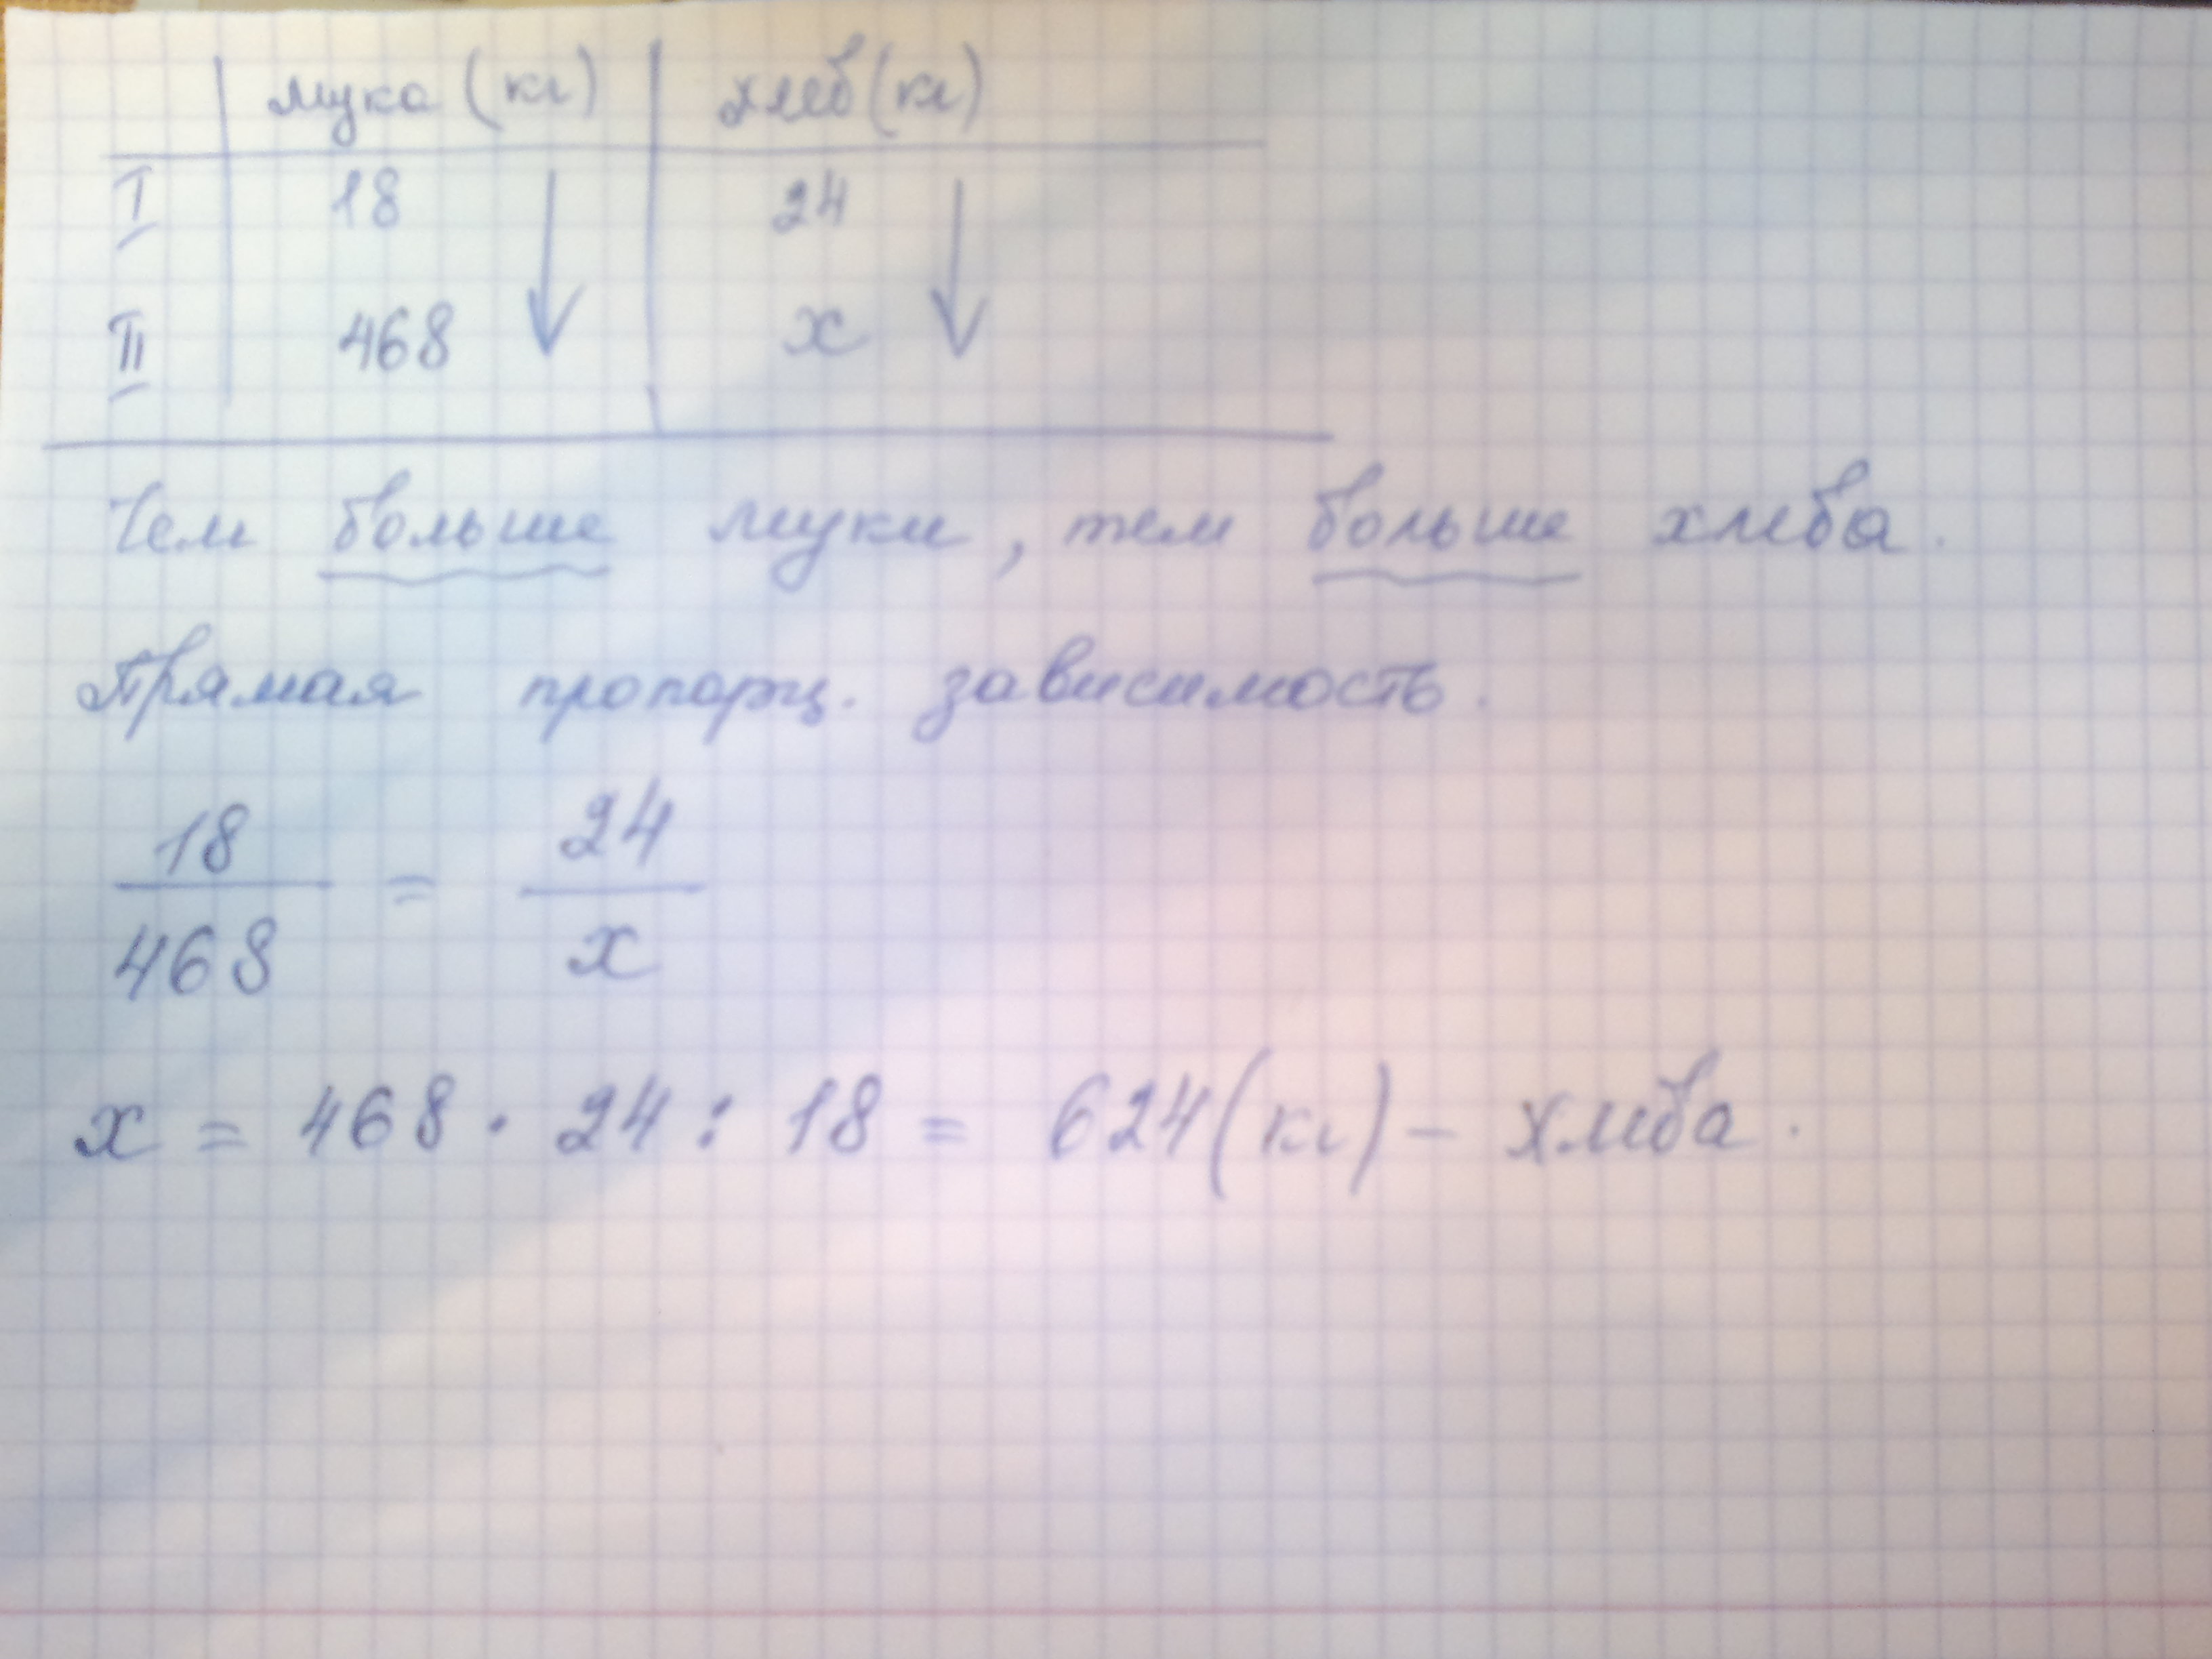 мука (кг) хлеб (кг)
I 18 24
II 468 x
Чем больше муки, тем больше хлеба.
Прямая пропорц. зависимость.
18/468 = 24/x
x = 468 · 24 : 18 = 624 (кг) - хлеба.